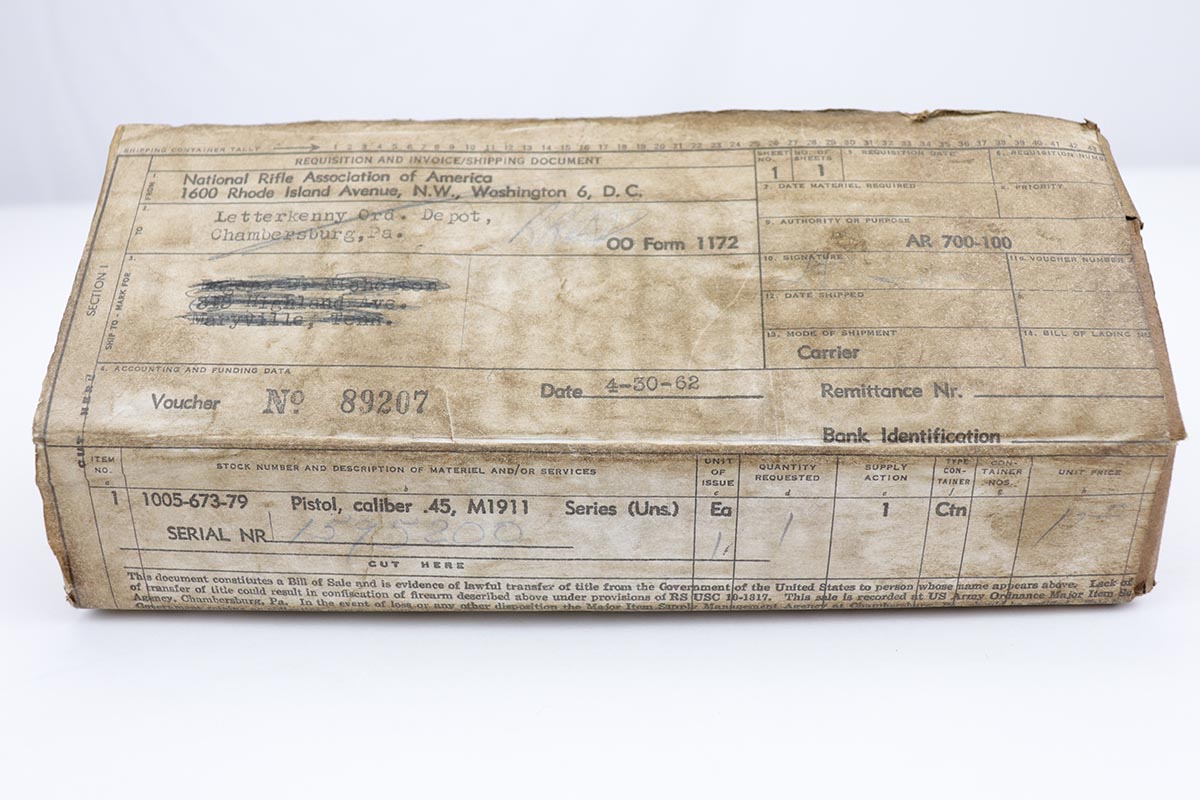 SHIPPING CONTAINER TALLY → 1 2 3 4 5 6 7 8 9 10 11 12 13 14 15 16 17 18 19 20 21 22 23 24 25 26 27 28 29 30 31 32 33 34 35 36 37 38 39 40 41 42 43
REQUISITION AND INVOICE/SHIPPING DOCUMENT
1. FROM
National Rifle Association of America
1600 Rhode Island Avenue, N.W., Washington 6, D. C.
SHEET NO. 1
NO. OF SHEETS 1
5. REQUISITION DATE
6. REQUISITION NUMB
7. DATE MATERIEL REQUIRED
8. PRIORITY
2. TO
Letterkenny Ord. Depot,
Chambersburg, Pa.
OO Form 1172
9. AUTHORITY OR PURPOSE
AR 700-100
SECTION I
3. SHIP TO - MARK FOR
Highland Ave.
Maryville, Tenn.
10. SIGNATURE
11a. VOUCHER NUMBER
12. DATE SHIPPED
b.
13. MODE OF SHIPMENT
Carrier
14. BILL OF LADING
4. ACCOUNTING AND FUNDING DATA
Voucher No 89207
Date 4-30-62
Remittance Nr.
Bank Identification
CUT HERE
ITEM NO. a
STOCK NUMBER AND DESCRIPTION OF MATERIEL AND/OR SERVICES b
UNIT OF ISSUE c
QUANTITY REQUESTED d
SUPPLY ACTION e
TYPE CON-TAINER f
CON-TAINER NOS. g
UNIT PRICE h
1 1005-673-79 Pistol, caliber .45, M1911 Series (Uns.) Ea 1 1 Ctn
SERIAL NR 1595200 1
CUT HERE
This document constitutes a Bill of Sale and is evidence of lawful transfer of title from the Government of the United States to person whose name appears above. Lack of
of transfer of title could result in confiscation of firearm described above under provisions of RS USC 10-1817. This sale is recorded at US Army Ordnance Major Item Su
Agency, Chambersburg, Pa. In the event of loss or any other disposition the Major Item Supply Management Agency at